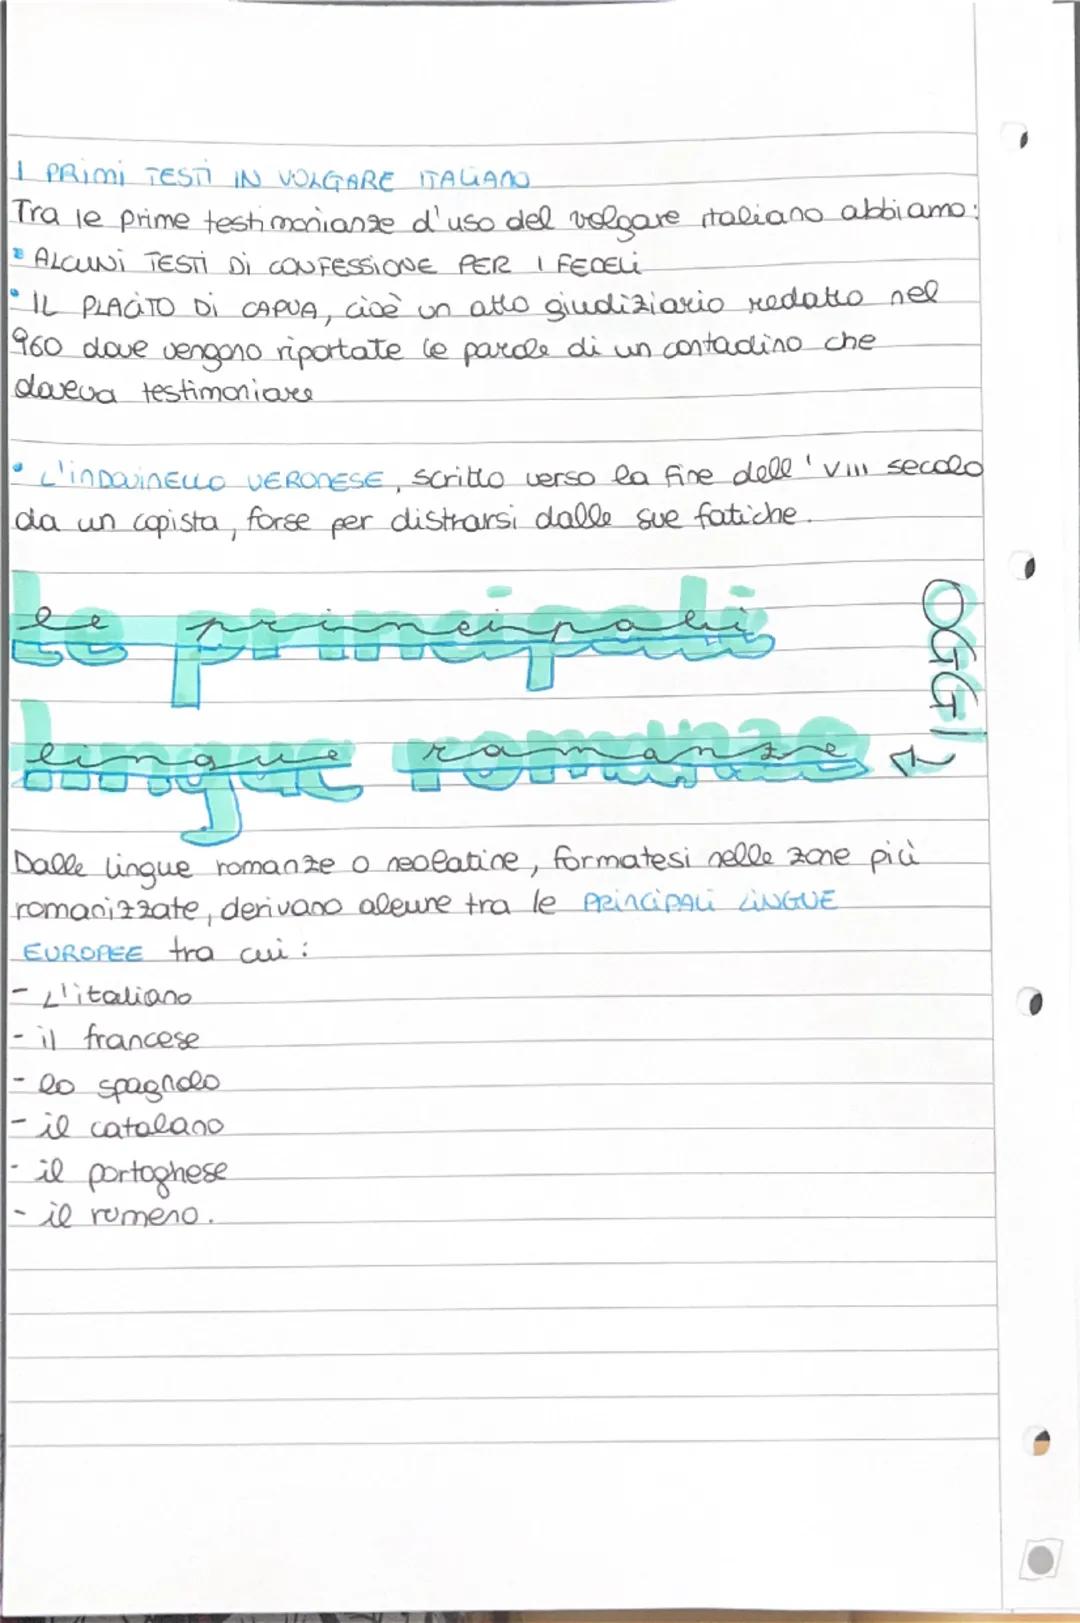 I PRIMI TESTI IN VOLGARE ITALIANO
Tra le prime testimonianze d'uso del volgare italiano abbiamo:
• ALCUNI TESTI DI CONFESSIONE PER I FEDELI
• IL PLACITO DI CAPUA, cioè un atto giudiziario redatto nel
960 dove vengono riportate le parole di un contadino che
doveva testimoniare
• L'INDOVINELLO VERONESE, scritto verso la fine dell'VIII secolo
da un copista, forse per distrarsi dalle sue fatiche.
le principali
lingue romanze
OGGI
Dalle lingue romanze o neolatine, formatesi nelle zone più
romanizzate, derivano alcune tra le PRINCIPALI LINGUE
EUROPEE tra cui:
- L'italiano
- il francese
- lo spagnolo
- il catalano
- il portoghese
- il rumeno.